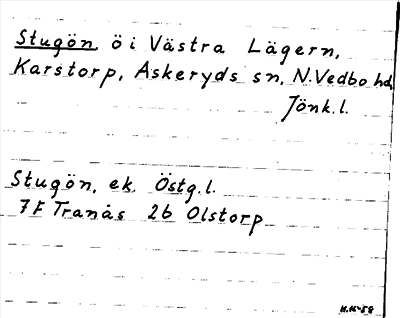 Stugön, ö i Västra Lägern,
Karstorp, Askeryds sn, N.Vedbo hd,
Jönk.l.
Stugön, ek. Östg.l.
7F Tranås 2b Olstorp